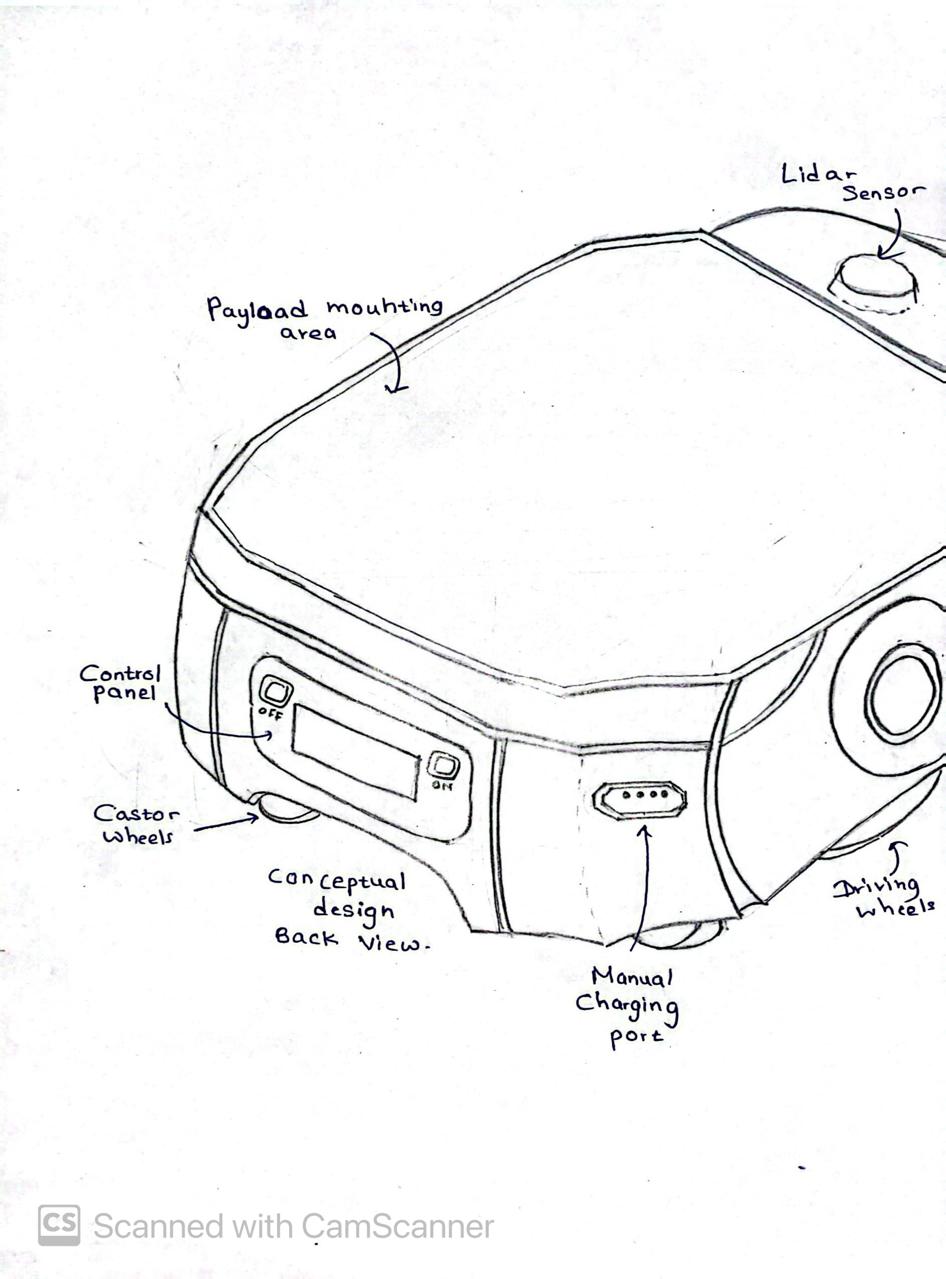 Lidar
Sensor
Payload mounting
area
Control
panel
OFF
ON
Castor
wheels
Conceptual
design
Back View.
Driving
wheels
Manual
Charging
port
CS Scanned with CamScanner